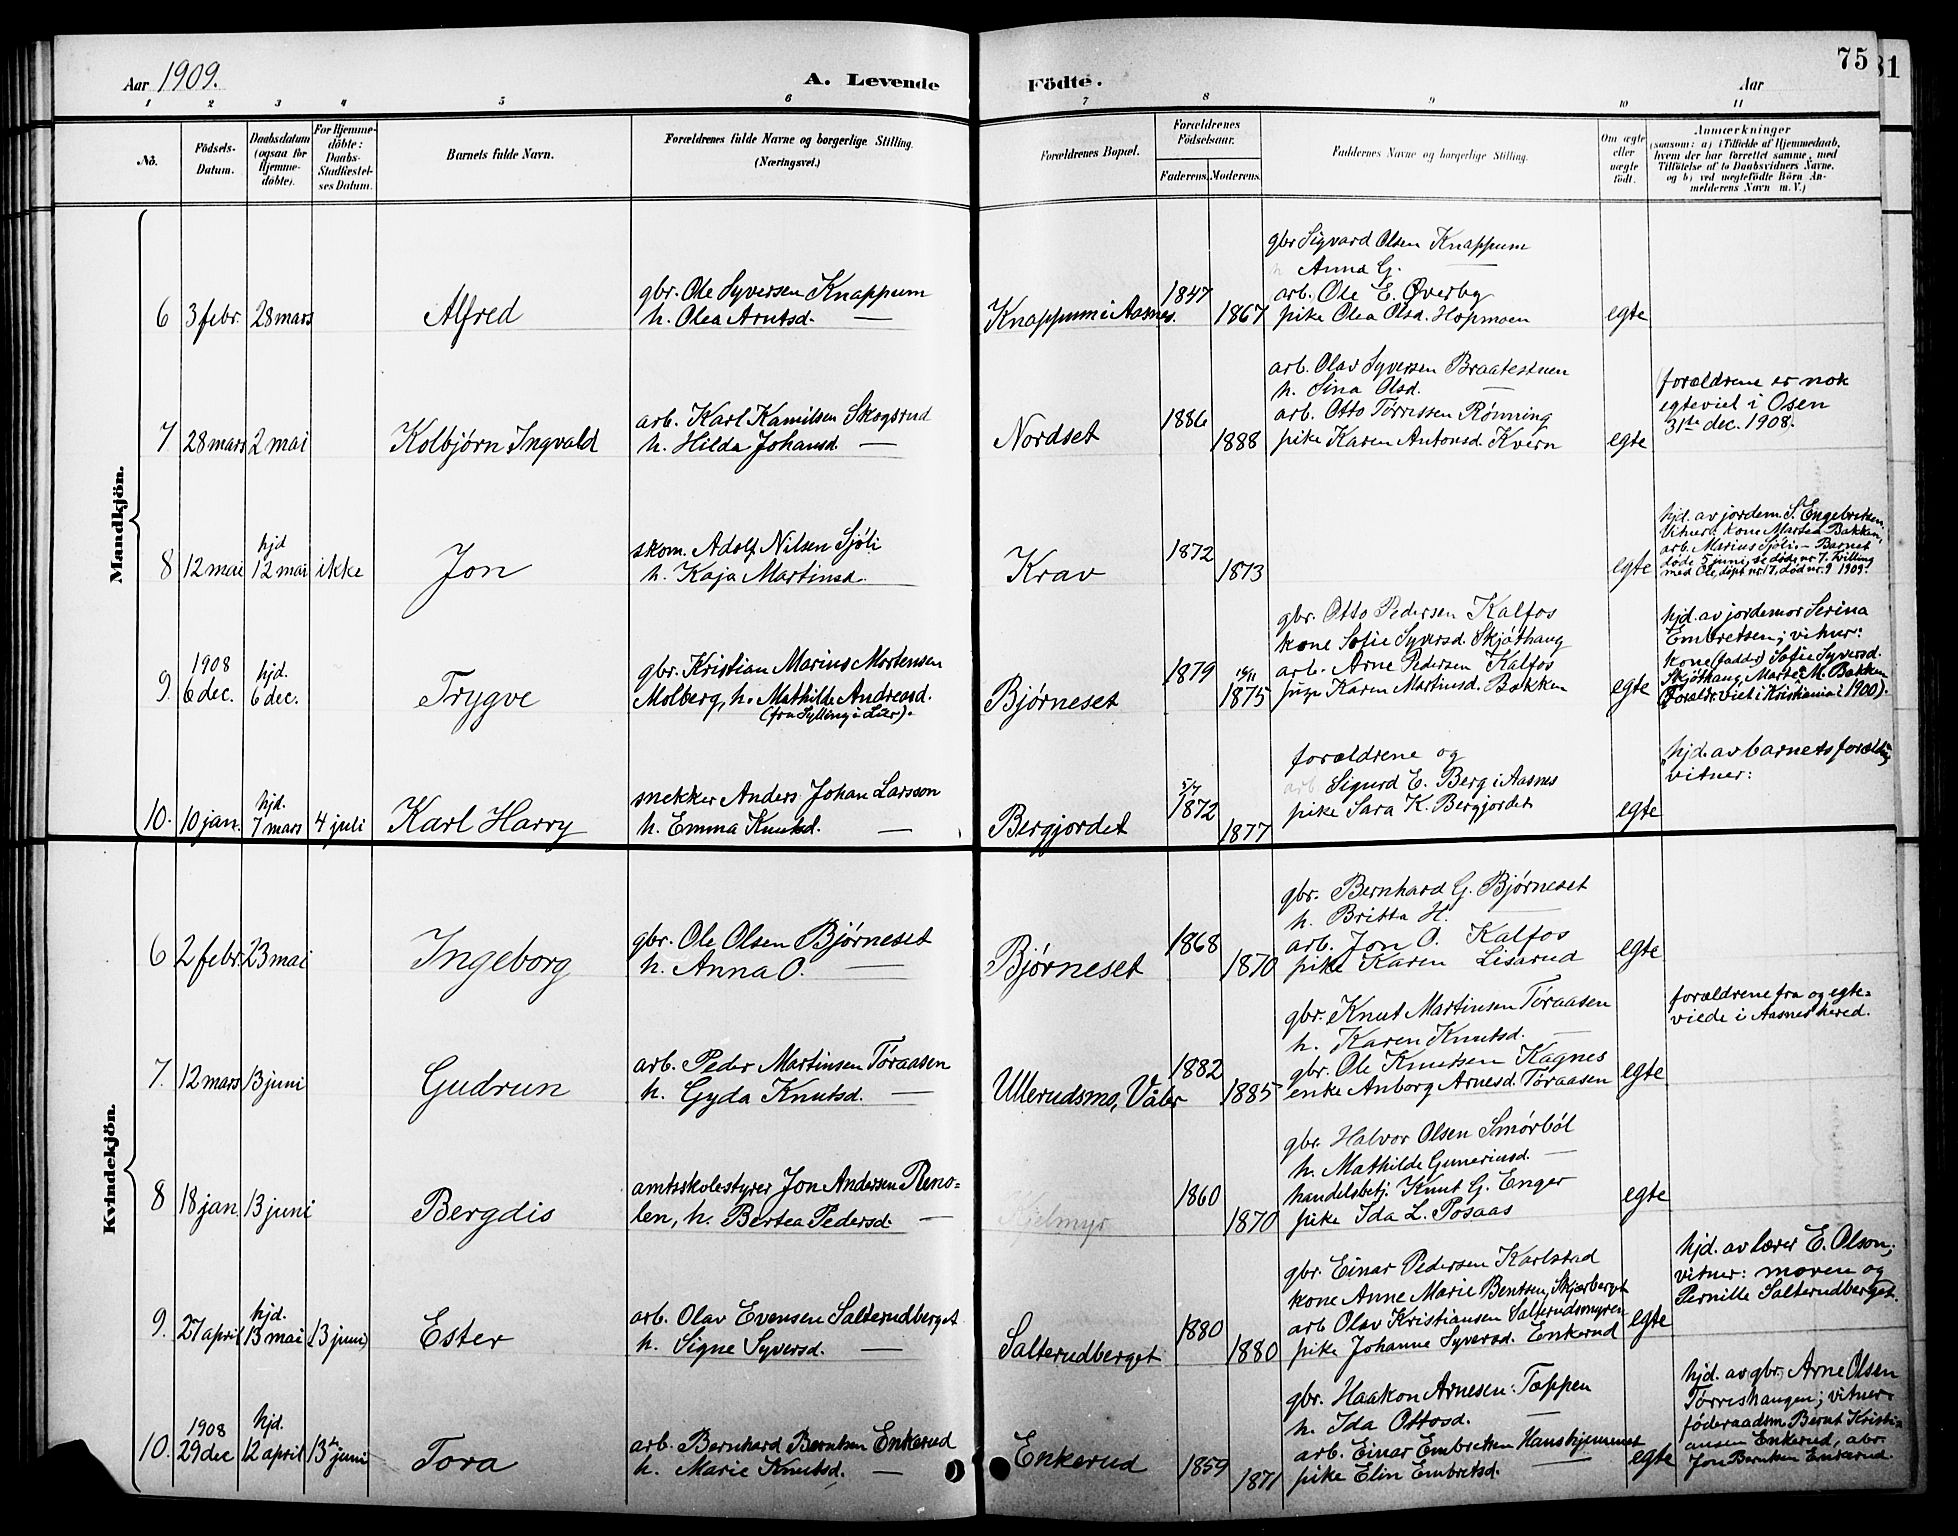 Aar 1909.
A. Levende Födte.
Aar
75
81
1 2 3 4 5 6 7 8 9 10 11
No.
Födsels-
Datum.
Daabsdatum
(ogsaa for
Hjemme-
döbte).
For Hjemme-
döbte:
Daabs-
Stadfæstel-
ses Datum.
Barnets fulde Navn.
Forældrenes fulde Navne og borgerlige Stilling.
(Næringsvei.)
Forældrenes Bopæl.
Forældrenes
Födselsaar.
Faderens. Moderens.
Faddernes Navne og borgerlige Stilling.
Om ægte
eller
uægte
födt.
Anmærkninger
(saasom: a) i Tilfælde af Hjemmedaab,
hvem der har forrettet samme, med
Tilföielse af to Daabsvidners Navne,
og b) ved uægtefödte Börn An-
melderens Navn m. V.)
Mandkjön.
6 3 febr. 28 mars
Alfred
gbr. Ole Syversen Knappum
h. Olea Arntsd. —
Knappum i Aasnes.
1847
1867
gbr Sigvard Olsen Knappum
h Anna G. —
arb. Ole E. Øverby
pike Olea Olsd. Hopmoen
egte
7 28 mars 2 mai
Kolbjørn Ingvald
arb. Karl Kamilsen Skogsrud
h. Hilda Johansd. —
Nordset
1886
1888
arb. Olav Syversen Braatestuen
h. Sina Olsd. —
arb. Otto Tørrissen Rønning
pike Karen Antonsd. Kvern
egte
forældrene er nok
egteviet i Osen
31te dec. 1908.
8 12 mai hjd 12 mai ikke
Jon
skom. Adolf Nilsen Sjöli
h. Kaja Martinsd. —
Krav
1872
1873
egte
hjd. av jordem. S. Engebretsen.
Vitner: kone Martea Bakken,
arb. Marius Sjöli. — Barnet
døde 5 juni, se døde nr. 7. Tvilling
med Ole, døpt nr. 17, død nr. 9 1909.
9. 1908 6 dec. hjd. 6 dec.
Trygve
gbr. Kristian Marius Mortensen
Molberg, h. Mathilde Andreasd.
(fra Sylling i Lier).
Bjørneset
1879
19/11
1875
gbr. Otto Pedersen Kalfos
kone Sofie Syversd. Skjøthaug
arb. Arne Pedersen Kalfos
pike Karen Martinsd. Bakken
egte
hjd. av jordemor Serina
Embretsen; vitner:
kone (fadder) Sofie Syversd.
Skjøthaug, Marte M. Bakken
(Forældr. viet i Kristiania i 1900).
10. 10 jan. hjd. 7 mars 4 juli
Karl Harry
snekker Anders Johan Larsson
h. Emma Knutsd. —
Bergjordet
5/7
1872
1877
forældrene og
arb Sigurd E. Berg i Aasnes
pike Sara K. Bergjordet
egte
hjd. av barnets forældre,
vitner:
Kvindekjön.
6 2 febr. 23 mai
Ingeborg
gbr. Ole Olsen Bjørneset
h. Anna O. —
Bjørneset
1868
1870
gbr. Bernhard G. Bjørneset
h. Britta H. —
arb. Jon O. Kalfos
pike Karen Lisarud
egte
7. 12 mars 13 juni
Gudrun
arb. Peder Martinsen Tøraasen
h. Gyda Knutsd. —
Ullerudsmo, Våler
1882
1885
gbr. Knut Martinsen Tøraasen
h. Karen Knutsd. —
gbr. Ole Knutsen Kagnes
enke Anborg Arnesd. Tøraasen
egte
forældrene fra og egte-
viede i Aasnes hered.
8 18 jan 13 juni
Bergdis
amtsskolestyrer Jon Andersen Reno-
len, h. Bertea Pedersd. —
Kjelmyr
1860
1870
gbr. Halvor Olsen Smörböl
h. Mathilde Guneriusd. —
handelsbetj. Knut G. Enger
pike Ida L. Posaas
egte
9. 27 april hjd. 13 mai 13 juni
Ester
arb. Olav Evensen Salterudberget
h. Signe Syversd. —
Salterudberget
1880
1880
gbr. Einar Pedersen Karlstad
kone Anne Marie Bentsen, Skjærberget
arb Olav Kristiansen Salterudsmyren
pike Johanne Syversd. Enkerud
egte
hjd. av lærer E. Olson;
vitner: moren og
Pernille Salterudberget.
10. 1908 29 dec hjd. 12 april 13de juni
Tora
arb. Bernhard Berntsen Enkerud
h. Marie Knutsd. —
Enkerud
1859
1871
gbr. Haakon Arnesen Tæppen
h. Ida Ottosd. —
arb. Einar Embretsen Hanshjemmet
pike Elin Embretsd. —
egte
hjd. av gbr. Arne Olsen
Tørrishaugen; vitner
føderaadsm. Bernt Kristi-
ansen Enkerud, abr.
Jon Berntsen Enkerud.